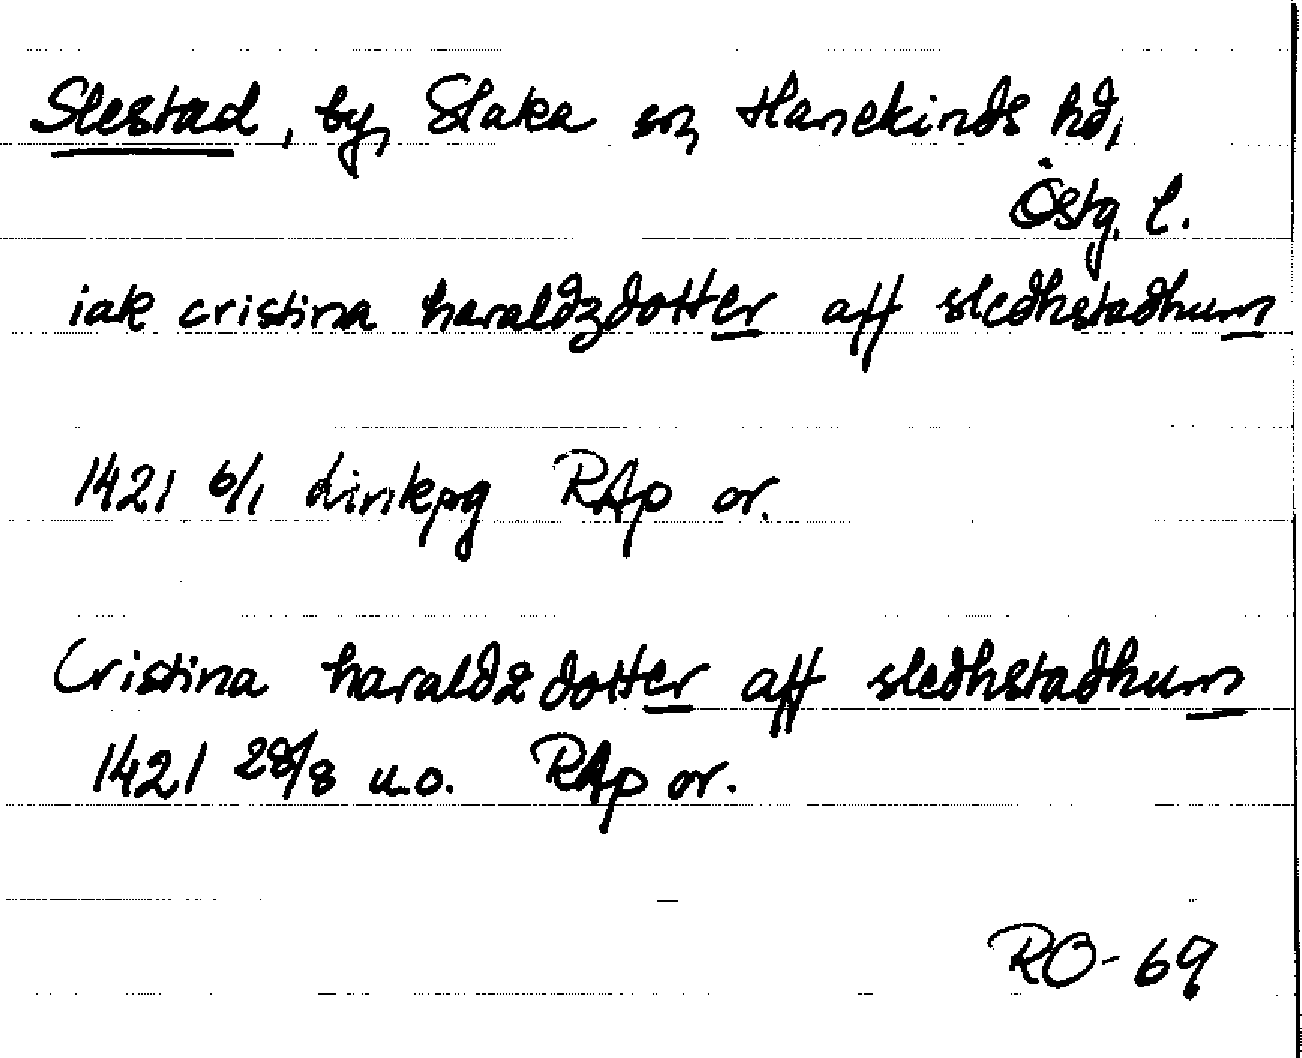 Slestad, by, Slaka sn, Hanekinds hd,
Östg. l.
iak cristina haraldzdotter aff sledhstadhum
1421 6/1 Linkpg RAp or.
Cristina haraldzdotter aff sledhstadhum
1421 28/8 u.o. RAp or.
RO-69